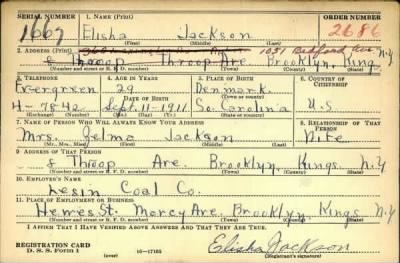 SERIAL NUMBER 1. NAME (Print) ORDER NUMBER
1667 Elisha Jackson 2686
(First) (Middle) (Last)
2. ADDRESS (Print) 1051 Bedford Ave
8 Throop Throop Ave. Brooklyn, Kings N.Y
(Number and street or R. F. D. number) (Town) (County) (State)
3. TELEPHONE 4. AGE IN YEARS 5. PLACE OF BIRTH 6. COUNTRY OF CITIZENSHIP
Evergreen 29 Denmark
DATE OF BIRTH (Town or county)
4-7842 Sept. 11-1911 So. Carolina U.S.
(Exchange) (Number) (Mo.) (Day) (Yr.) (State or country)
7. NAME OF PERSON WHO WILL ALWAYS KNOW YOUR ADDRESS 8. RELATIONSHIP OF THAT PERSON
Mrs. Jackson
(Mr., Mrs., Miss) (First) (Middle) (Last)
9. ADDRESS OF THAT PERSON
8 Throop Ave. Brooklyn, Kings N.Y
(Number and street or R. F. D. number) (Town) (County) (State)
10. EMPLOYER'S NAME
Coal Co.
11. PLACE OF EMPLOYMENT OR BUSINESS
St. Ave. Brooklyn, Kings N.Y
(Number and street or R. F. D. number) (Town) (County) (State)
I AFFIRM THAT I HAVE VERIFIED ABOVE ANSWERS AND THAT THEY ARE TRUE.
REGISTRATION CARD
D. S. S. Form 1 (over) 16-17105 Elisha Jackson
(Registrant's signature)